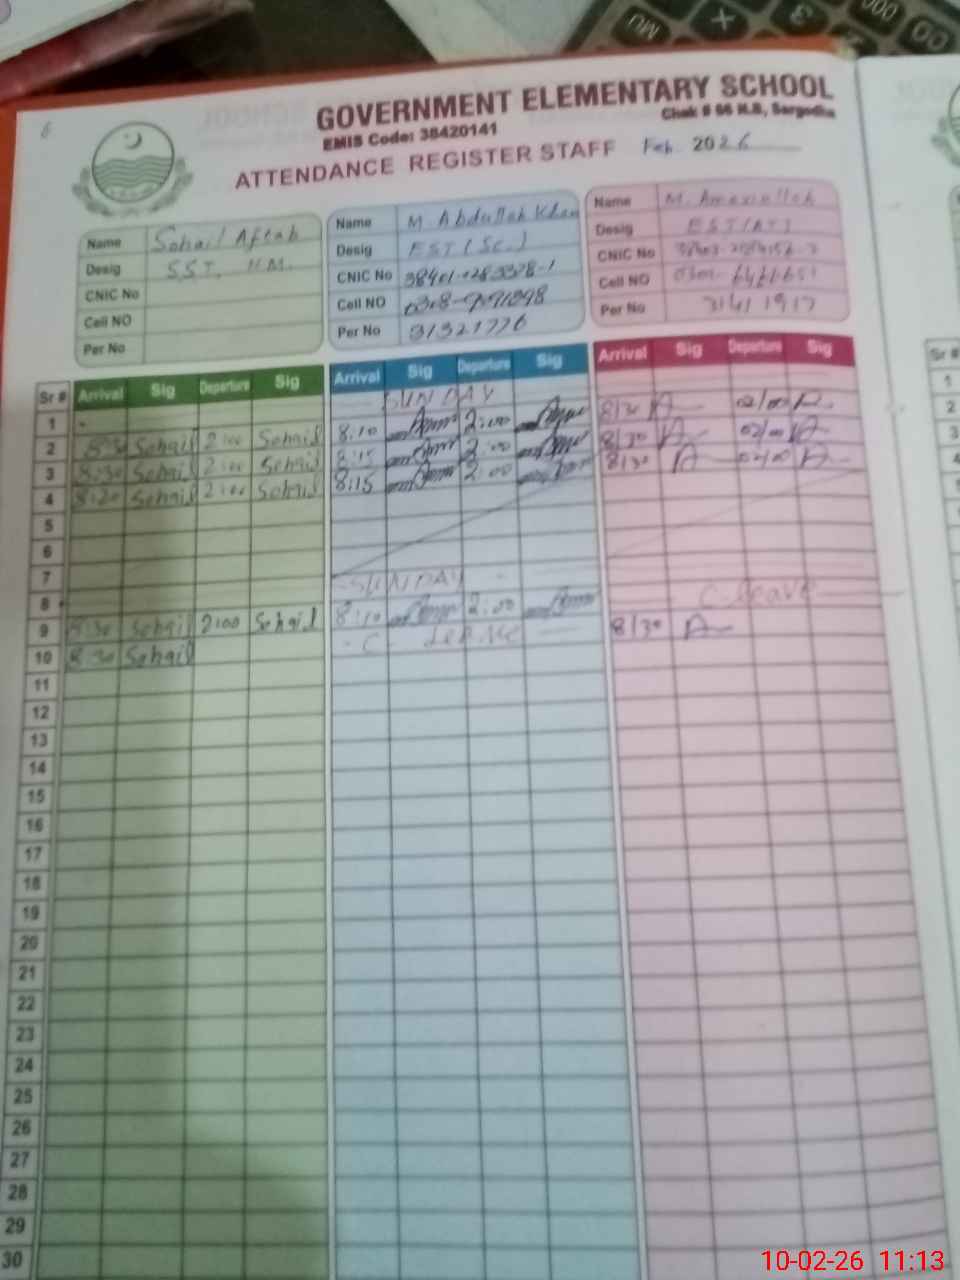 6
GOVERNMENT ELEMENTARY SCHOOL
Chak # 96 N.B, Sargodha
EMIS Code: 38420141
ATTENDANCE REGISTER STAFF Feb 2026
Name Sohail Aftab
Desig S.S.T. H.M.
CNIC No
Cell NO
Per No
Name M. Abdullah Khan
Desig EST (Sc.)
CNIC No
Cell NO
Per No 31321776
Name M. Amanullah
Desig
CNIC No
Cell NO
Per No
Sr # Arrival Sig Departure Sig Arrival Sig Departure Sig Arrival Sig Departure Sig
1 SUNDAY
2 Sohail 2:00 Sohail 8:10 2:00 8/30 02/00
3 8:30 Sohail 2:00 Sohail 8:15 2:00 8/30 02/00
4 8:20 Sohail 2:00 Sohail 8:15 2:00 8/30 02/00
5
6
7
8 SUNDAY
9 8:30 Sohail 2:00 Sohail 8:10 2:00 C. leave
10 8:30 Sohail C. Leave 8/30
11
12
13
14
15
16
17
18
19
20
21
22
23
24
25
26
27
28
29
30
Sr #
1
2
3
4
10-02-26 11:13